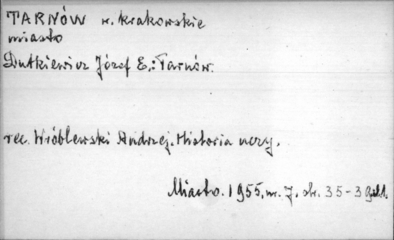 TARNÓW w. krakowskie
miasto
Dutkiewicz Józef E.: Tarnów.
rec. Wróblewski Andrzej. Historia
Miasto. 1955. nr. 7. str. 35-3